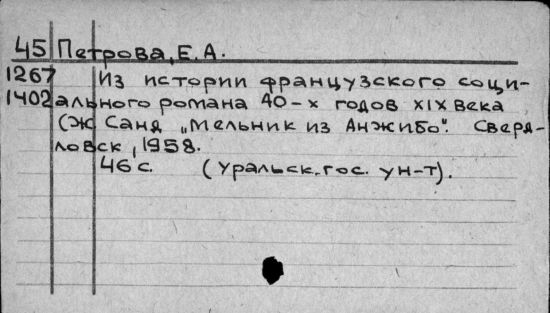 45 Петрова, Е.А.
1267 Из истории французского соци-
1402 ального романа 40-х годов XIX века
(Ж Санд „Мельник из Анжибо". Сверд-
ловск, 1958.
46 с. (Уральск. гос. ун-т).